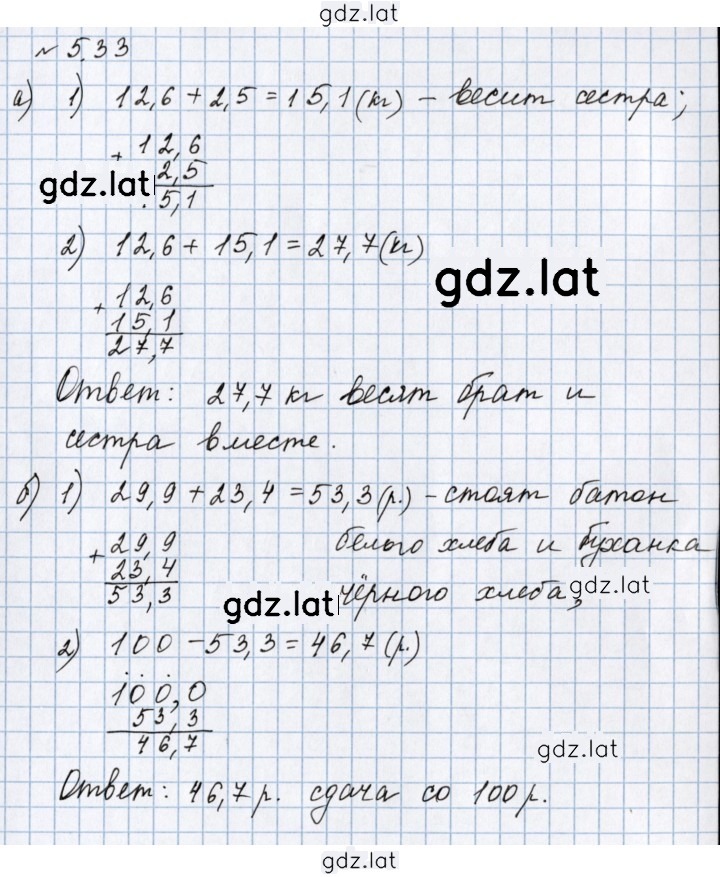 gdz.lat
№ 5.33
а) 1) 12,6 + 2,5 = 15,1 (кг) – весит сестра;
+ 12,6
gdz.lat 2,5
5,1
2) 12,6 + 15,1 = 27,7 (кг)
gdz.lat
+ 12,6
15,1
27,7
Ответ: 27,7 кг весят брат и
сестра вместе.
б) 1) 29,9 + 23,4 = 53,3 (р.) – стоят батон
белого хлеба и буханка
чёрного хлеба;
+ 29,9
23,4
53,3
gdz.lat
gdz.lat
2) 100 – 53,3 = 46,7 (р.)
100,0
53,3
46,7
gdz.lat
Ответ: 46,7 р. сдача со 100 р.
gdz.lat